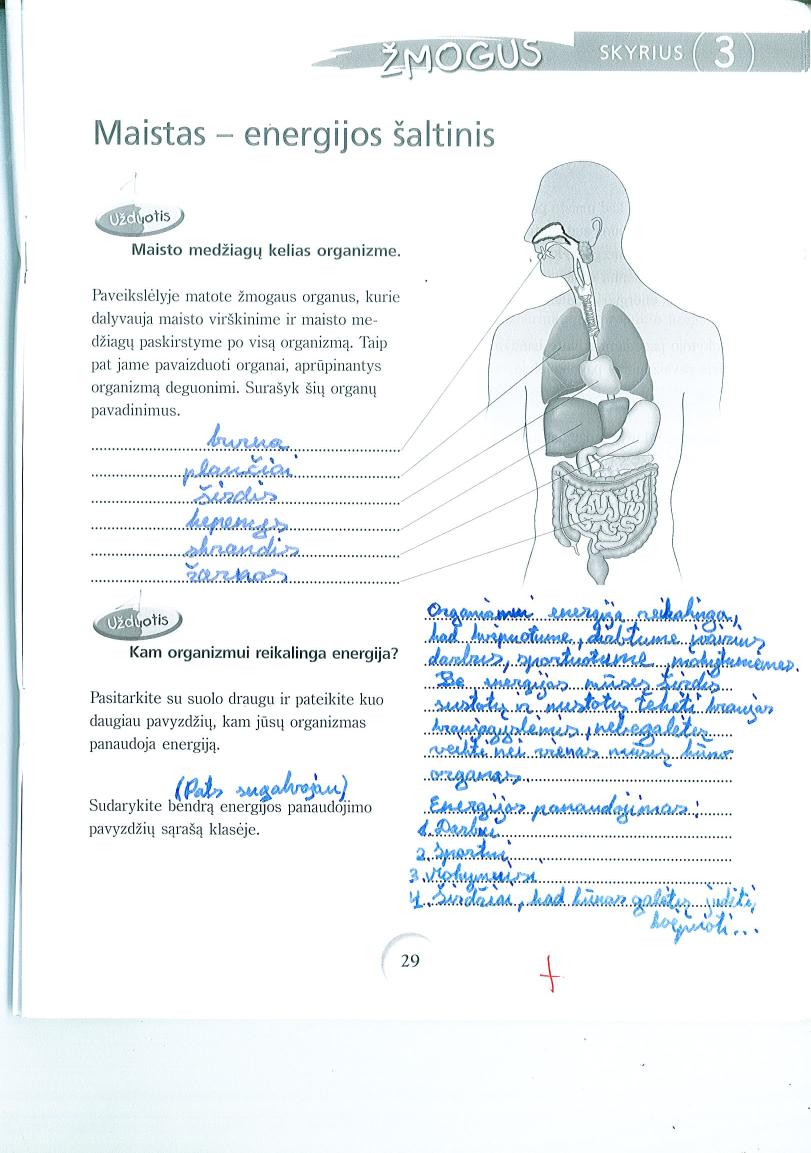 ŽMOGUS SKYRIUS 3
Maistas – energijos šaltinis
1
Užduotis
Maisto medžiagų kelias organizme.
Paveikslėlyje matote žmogaus organus, kurie
dalyvauja maisto virškinime ir maisto me-
džiagų paskirstyme po visą organizmą. Taip
pat jame pavaizduoti organai, aprūpinantys
organizmą deguonimi. Surašyk šių organų
pavadinimus.
burna
plaučiai
širdis
kepenys
skrandis
žarnos
1
Užduotis
Kam organizmui reikalinga energija?
Pasitarkite su suolo draugu ir pateikite kuo
daugiau pavyzdžių, kam jūsų organizmas
panaudoja energiją.
(Pats sugalvojau)
Sudarykite bendrą energijos panaudojimo
pavyzdžių sąrašą klasėje.
Organizmui energija reikalinga,
kad kvėpuotume, dirbtume įvairius
darbus, sportuotume, mokytumėmės.
Be energijos mūsų širdis
sustotų ir nustotų tekėti kraujas
kraujagyslėmis, nebegalėtų
veikti nei vienas mūsų kūno
organas.
Energijos panaudojimas:
1. Darbui
2. Sportui
3. Mokymuisi
4. Širdžiai, kad kūnas galėtų judėti,
kvėpuoti...
29
+